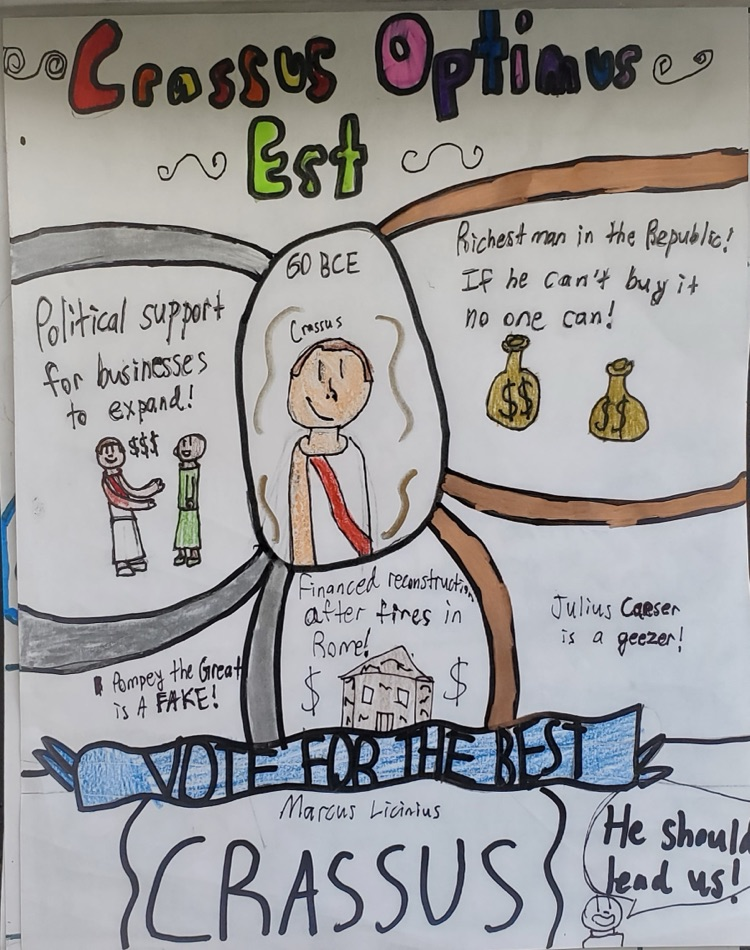 Crassus Optimus
Est
60 BCE
Crassus
Political support
for businesses
to expand!
$$$
Richest man in the Republic!
If he can't buy it
no one can!
$$
$$
Financed reconstruction
after fires in
Rome!
$ $
Pompey the Great
is A FAKE!
Julius Caeser
is a geezer!
VOTE FOR THE BEST
Marcus Licinius
CRASSUS
He should
lead us!